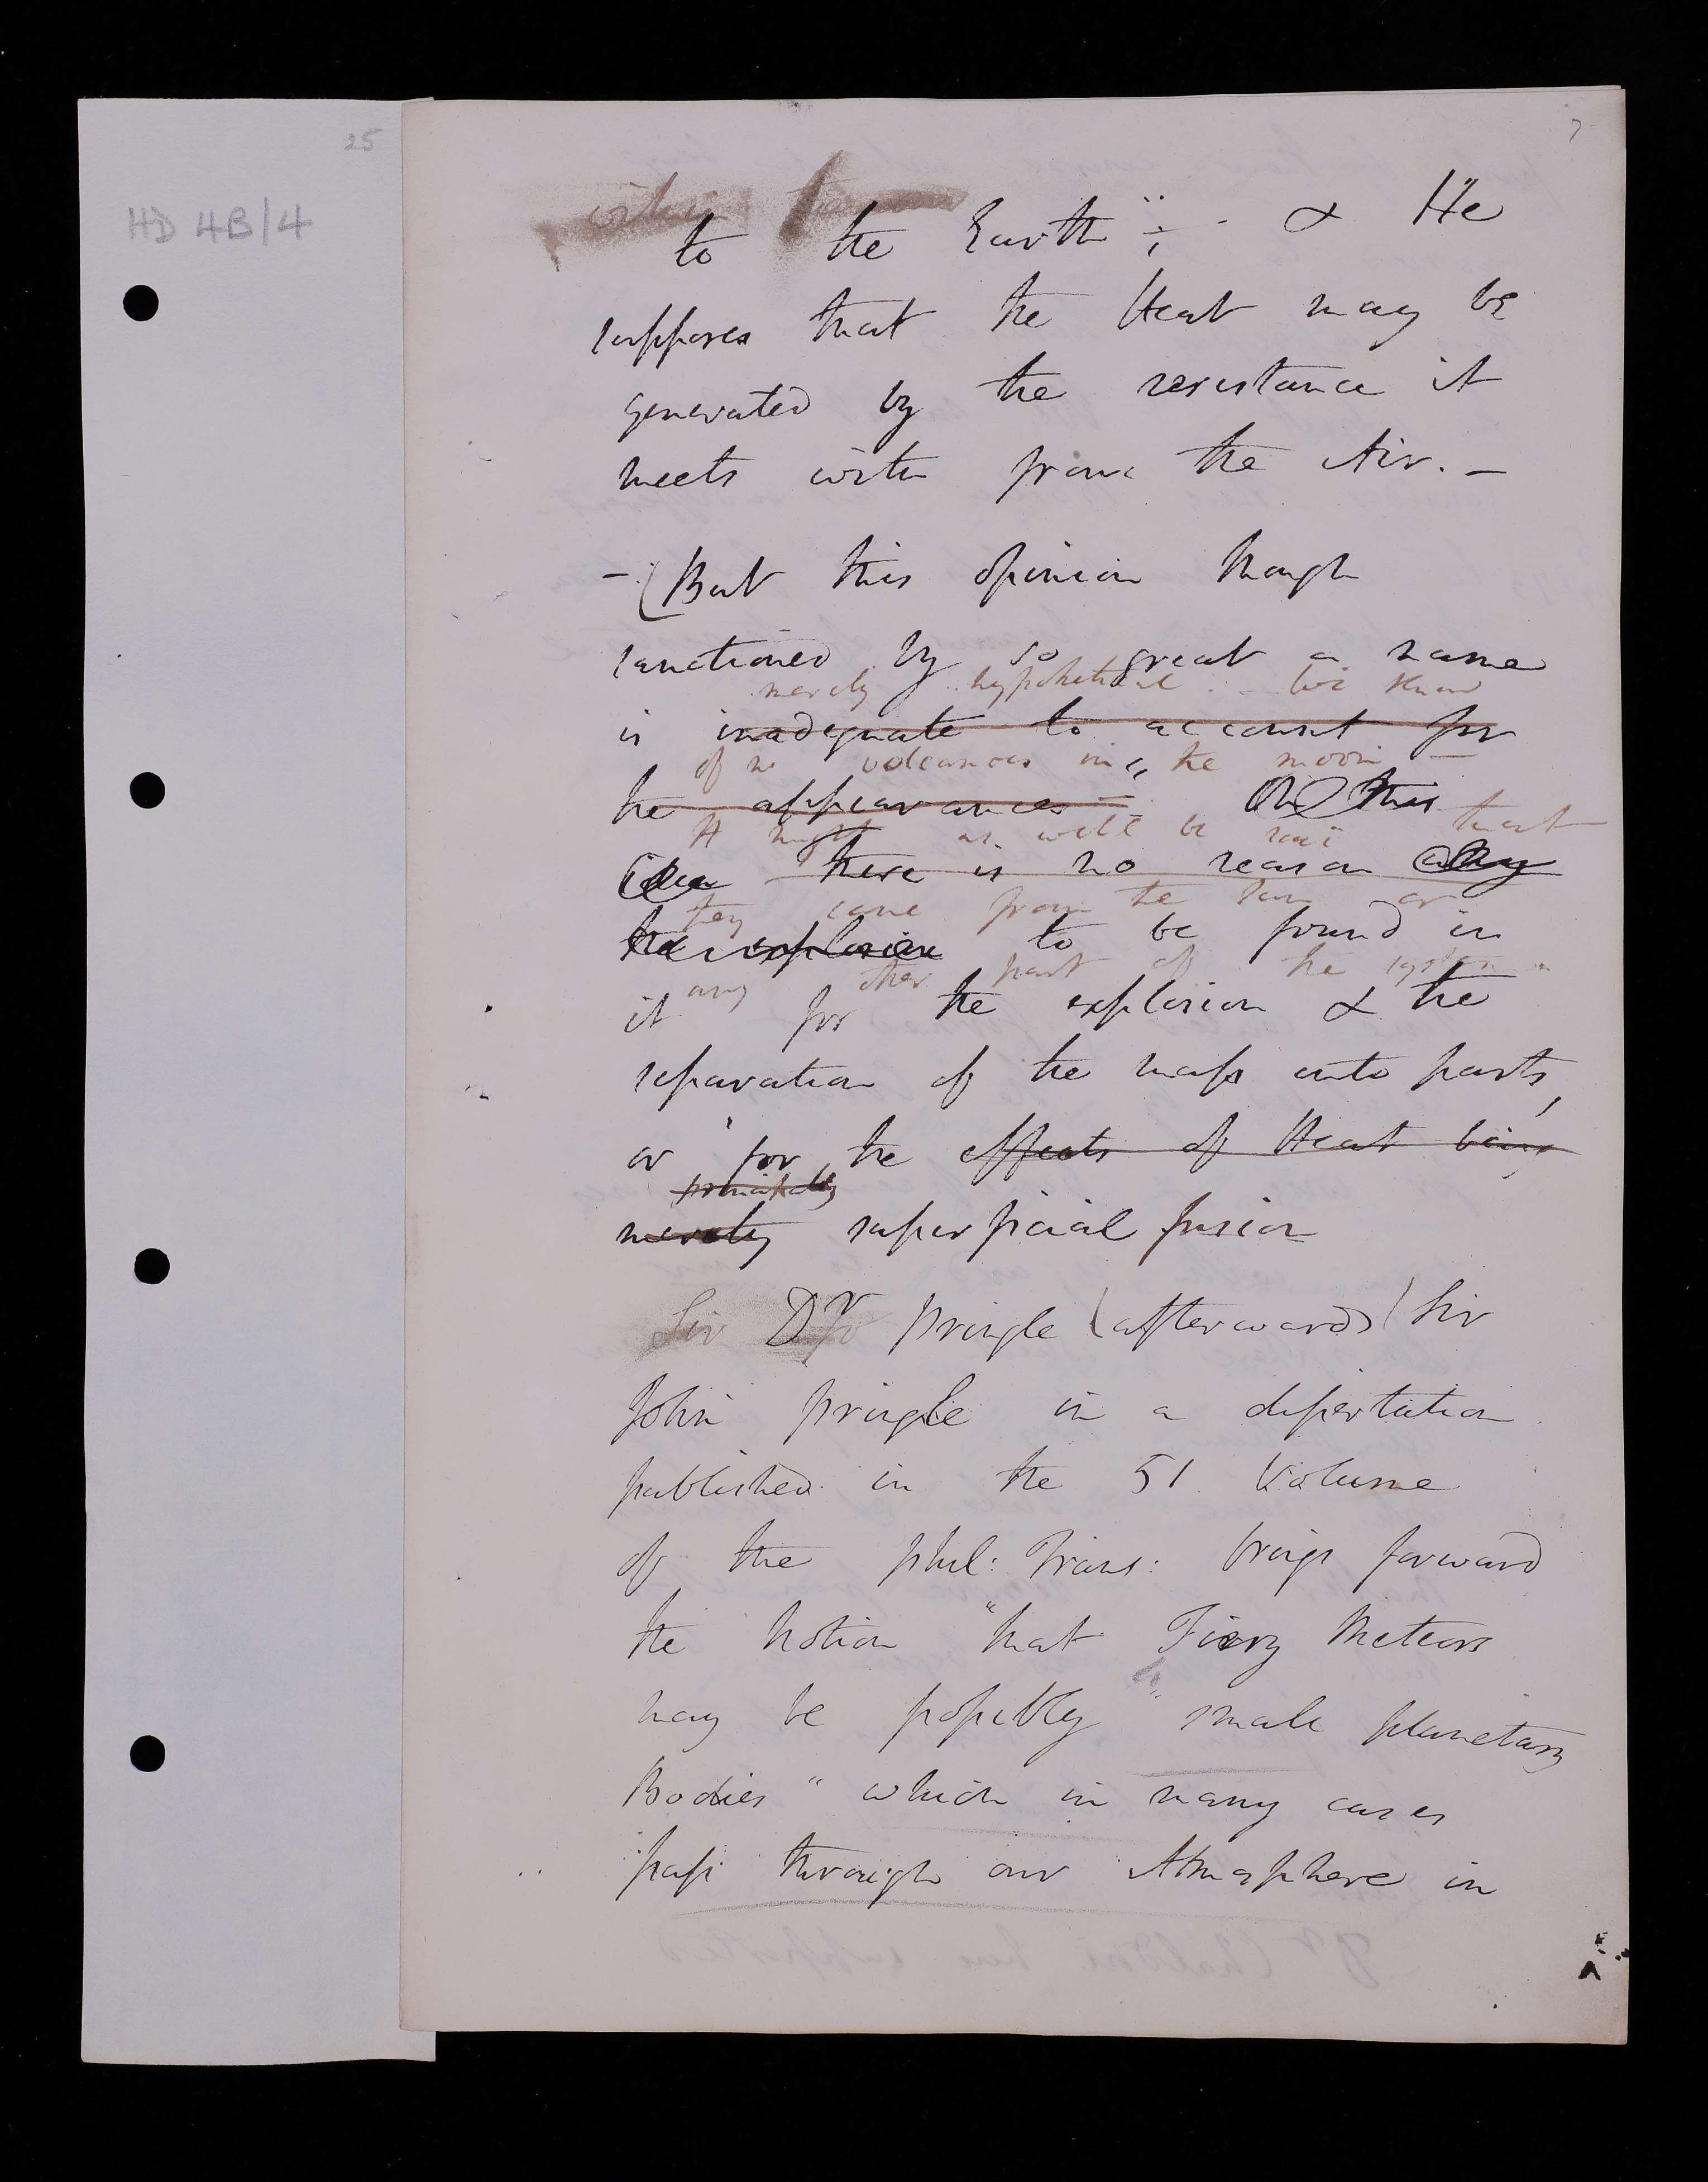 25
HD 4B/4
7
within
to the Earth"; - & He
supposes that the Heat may be
generated by the resistance it
meets with from the Air. -
- (But this opinion though
sanctioned by so great a name
merely hypothetical. - We know
is inadequate to account for
of no volcanoes in the moon -
the appearances - this
It might as well be said that
idea there is no reason why
they came from the sun or
the explosion to be found in
any other part of the system
it for the explosion & the
separation of the mass into parts,
or for the effects of Heat being
principally
merely superficial fusion
Sir Dr Pringle (afterwards) Sir
John Pringle in a dissertation
published in the 51 Volume
of the Phil: Trans: brings forward
the notion "that Fiery Meteors
may be possibly "small planetary
Bodies" which in many cases
pass through our Atmosphere in